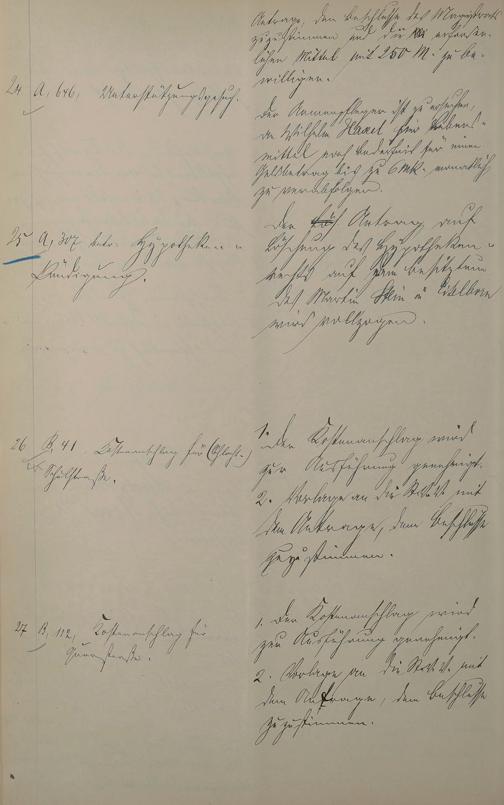 Antrage, dem Beschlusse des Magistrats
zuzustimmen und die erforder-
lichen Mittel mit 250 M. zu be-
willigen.
24 A, 646, Unterstützungsgesuch.
Der Armenpfleger ist zu ersuchen,
an Wilhelm für Lebens-
mittel nach Bedürfnis für einen
Geldbetrag bis zu 6 Mk. monatlich
zu verabfolgen.
25 A, 307 betr. Hypotheken-
Kündigung.
Der Antrag auf
Löschung des Hypotheken-
rechts auf dem Besitztum
des Martin
wird vollzogen.
26 B, 41, Kostenanschlag für
Schulstraße.
1. Der Kostenanschlag wird
zur Ausführung genehmigt.
2. Vorlage an die St.V.V. mit
dem Antrage, dem Beschlusse
zuzustimmen.
27 B, 112, Kostenanschlag für
Querstraße.
1. Der Kostenanschlag wird
zur Ausführung genehmigt.
2. Vorlage an die St.V.V. mit
dem Antrage, dem Beschlusse
zuzustimmen.